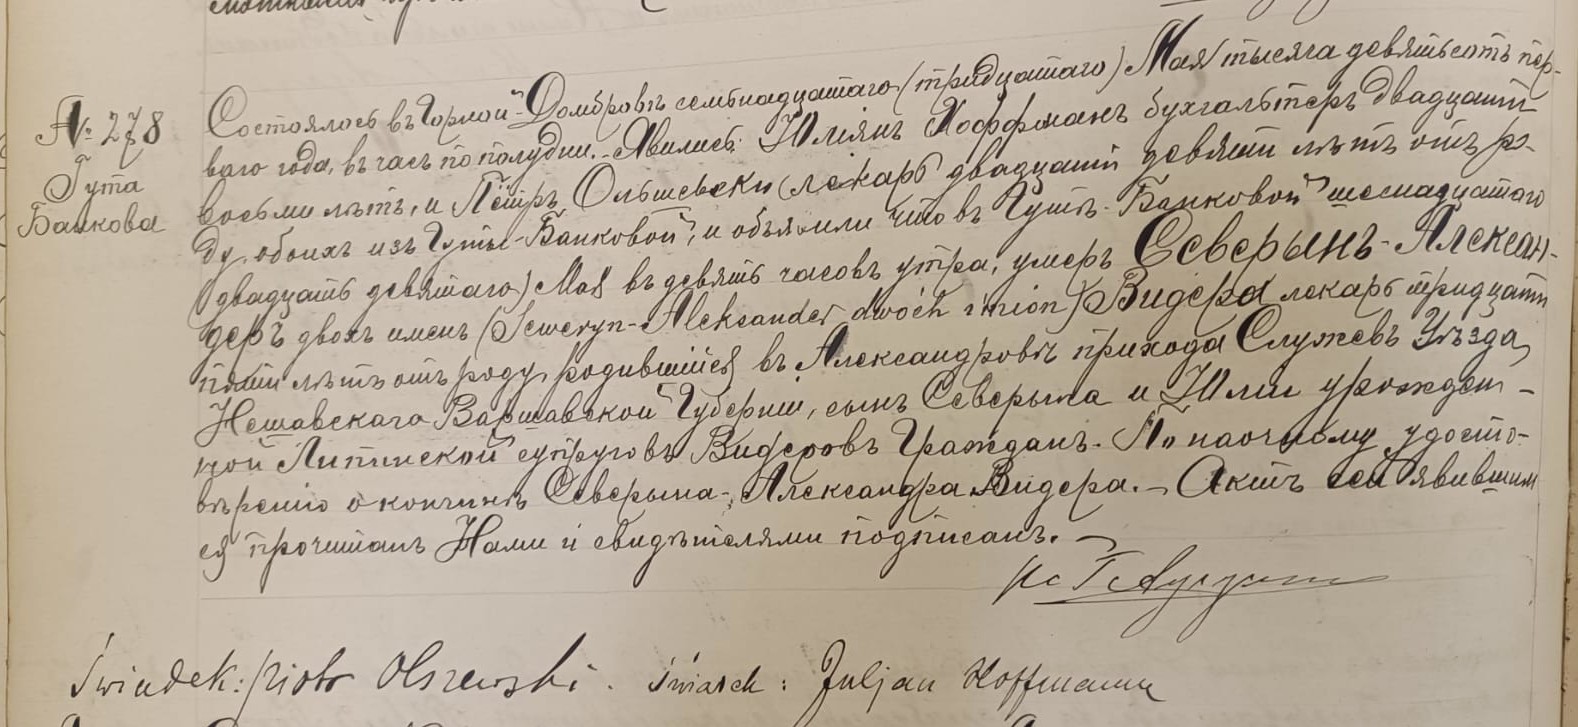 № 278
Гута
Банкова
Состоялось въ Горной-Домбровѣ семнадцатаго (тридцатаго) Мая тысяча девятьсотъ пер-
ваго года, въ часъ пополудни. Явились: Юліянъ Хоффманъ бухгальтеръ двадцати
восьми лѣтъ, и Пётръ Ольшевски лекарь двадцати девяти лѣтъ отъ ро-
ду, обоихъ изъ Гуты-Банковой, и объявили что въ Гутѣ-Банковой шеснадцатаго
(двадцать девятаго) Мая въ девять часовъ утра, умеръ Северынъ-Алексан-
деръ двохъ именъ (Seweryn-Aleksander dwóch imion) Видера лекарь тридцати
пяти лѣтъ отъ роду, родившійся въ Александровѣ прихода Служевъ Уѣзда
Нешавскаго Варшавской Губерніи, сынъ Северына и Юліи урожден-
ной Липинской супруговъ Видеровъ Гражданъ. По наочному удосто-
вѣренію о кончинѣ Северына-Александра Видера. Актъ сей явившим
ся прочитанъ Нами и свидѣтелями подписанъ.
Świadek: Piotr Olszewski. Świadek: Juljan Hoffmann